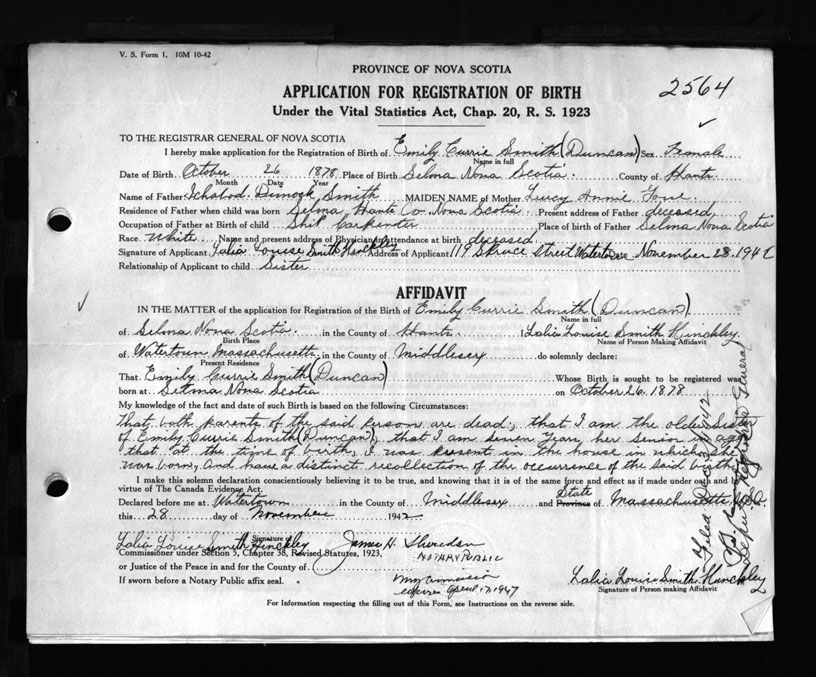 V. S. Form 1. 10M 10-42
PROVINCE OF NOVA SCOTIA
APPLICATION FOR REGISTRATION OF BIRTH
2564
Under the Vital Statistics Act, Chap. 20, R. S. 1923
TO THE REGISTRAR GENERAL OF NOVA SCOTIA
I hereby make application for the Registration of Birth of Emily Currie Smith (Duncan) Sex Female
Name in full
Date of Birth October 26 1878 Place of Birth Selma Nova Scotia County of Hants
Month Date Year
Name of Father Ichabod Dimock Smith MAIDEN NAME of Mother Lucy Annie
Residence of Father when child was born Selma Hants Co Nova Scotia Present address of Father deceased
Occupation of Father at Birth of child Ship Carpenter Place of birth of Father Selma Nova Scotia
Race White Name and present address of Physician in attendance at birth deceased
Signature of Applicant Lalia Louise Smith Hinckley Address of Applicant 119 Spruce Street Watertown Date November 28 1942
Relationship of Applicant to child Sister
AFFIDAVIT
IN THE MATTER of the application for Registration of the Birth of Emily Currie Smith (Duncan)
Name in full
of Selma Nova Scotia in the County of Hants I Lalia Louise Smith Hinckley
Birth Place Name of Person Making Affidavit
of Watertown Massachusetts in the County of Middlesex do solemnly declare:
Present Residence
That Emily Currie Smith (Duncan) Whose Birth is sought to be registered was
born at Selma Nova Scotia on October 26, 1878
My knowledge of the fact and date of such Birth is based on the following Circumstances:
That both parents of the said person are dead; that I am the older Sister
of Emily Currie Smith (Duncan), that I am seven years her senior in age
that at the time of birth, I was present in the house in which she
was born, and have a distinct recollection of the occurrence of the said birth
I make this solemn declaration conscientiously believing it to be true, and knowing that it is of the same force and effect as if made under oath and by
virtue of The Canada Evidence Act.
State
Declared before me at Watertown in the County of Middlesex and Province of Massachusetts U.S.A.
this 28 day of November 1942
Signature of
Lalia Louise Smith Hinckley James H. Sheridan
Commissioner under Section 5, Chapter 38, Revised Statutes, 1923, NOTARY PUBLIC
or Justice of the Peace in and for the County of
If sworn before a Notary Public affix seal. My commission
expires April 17, 1947
Lalia Louise Smith Hinckley
Signature of Person making Affidavit
For Information respecting the filling out of this Form, see Instructions on the reverse side.
Filed Dec 1942
Deputy Registrar General